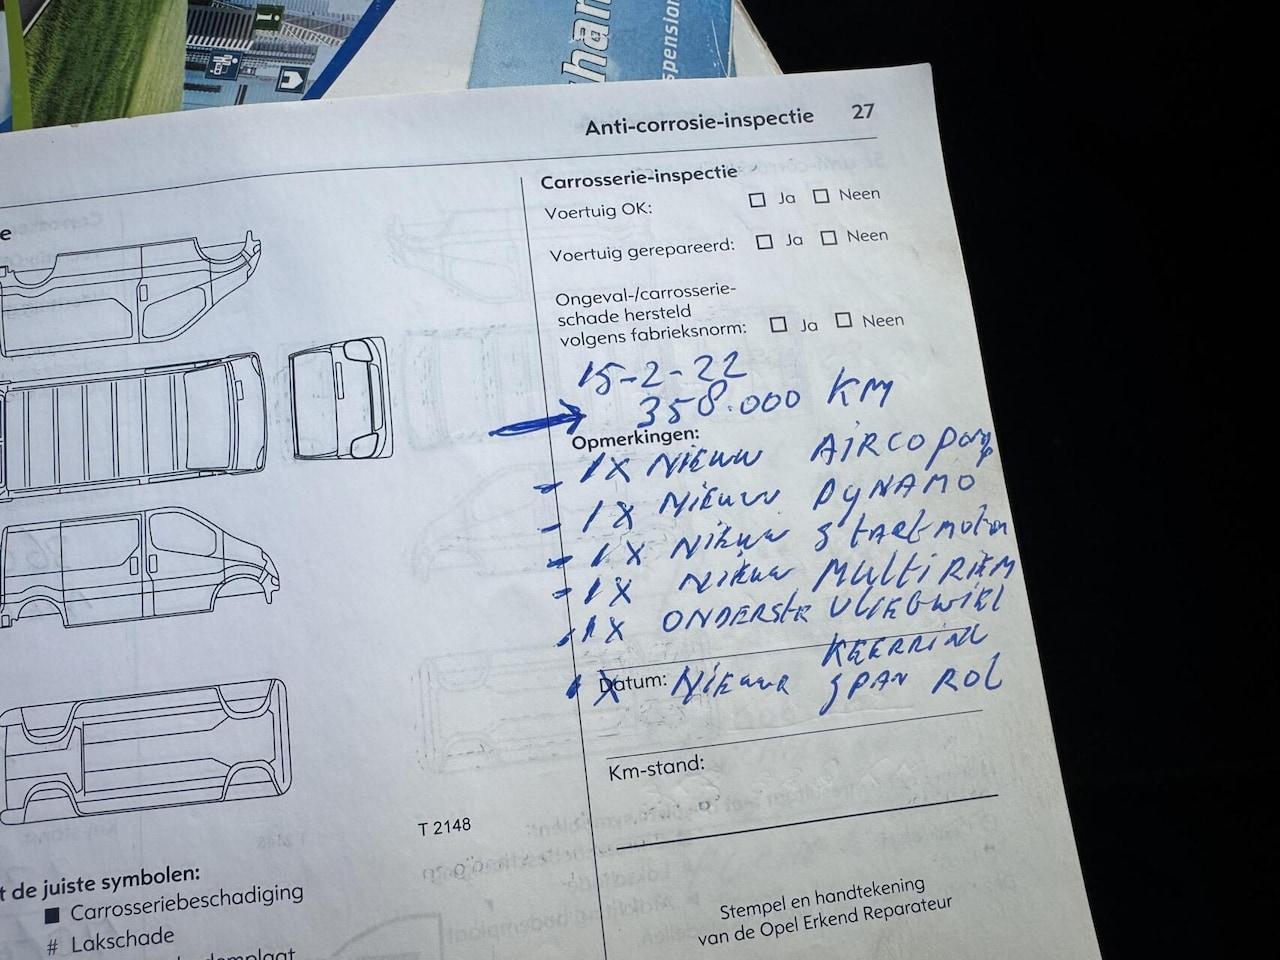 i
han
spension
Anti-corrosie-inspectie 27
e
Carrosserie-inspectie
Voertuig OK: ☐ Ja ☐ Neen
Voertuig gerepareerd: ☐ Ja ☐ Neen
Ongeval-/carrosserie-
schade hersteld
volgens fabrieksnorm: ☐ Ja ☐ Neen
15-2-22
358.000 KM
Opmerkingen:
- 1X NIEUW AIRCO pomp
- 1X NIEUW DYNAMO
- 1X NIEUW StARtmotor
- 1X NIEUW MULtiRIEM
- 1X ONDERStE VLIEGWIEL
KEERRING
Datum:
1X NIEUWE SPAN ROL
Km-stand:
T 2148
t de juiste symbolen:
■ Carrosseriebeschadiging
# Lakschade
demplaat
Stempel en handtekening
van de Opel Erkend Reparateur